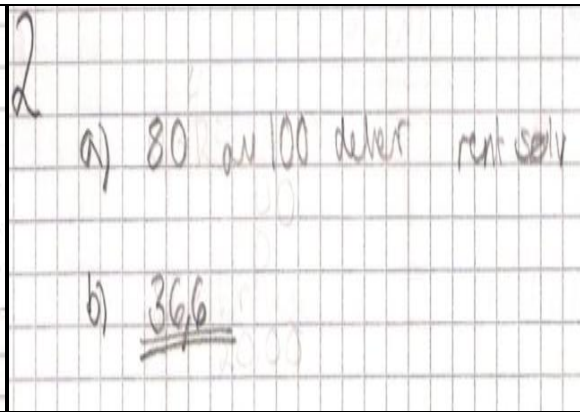 2
a) 80 av 100 deler rent sølv
b) 36,6